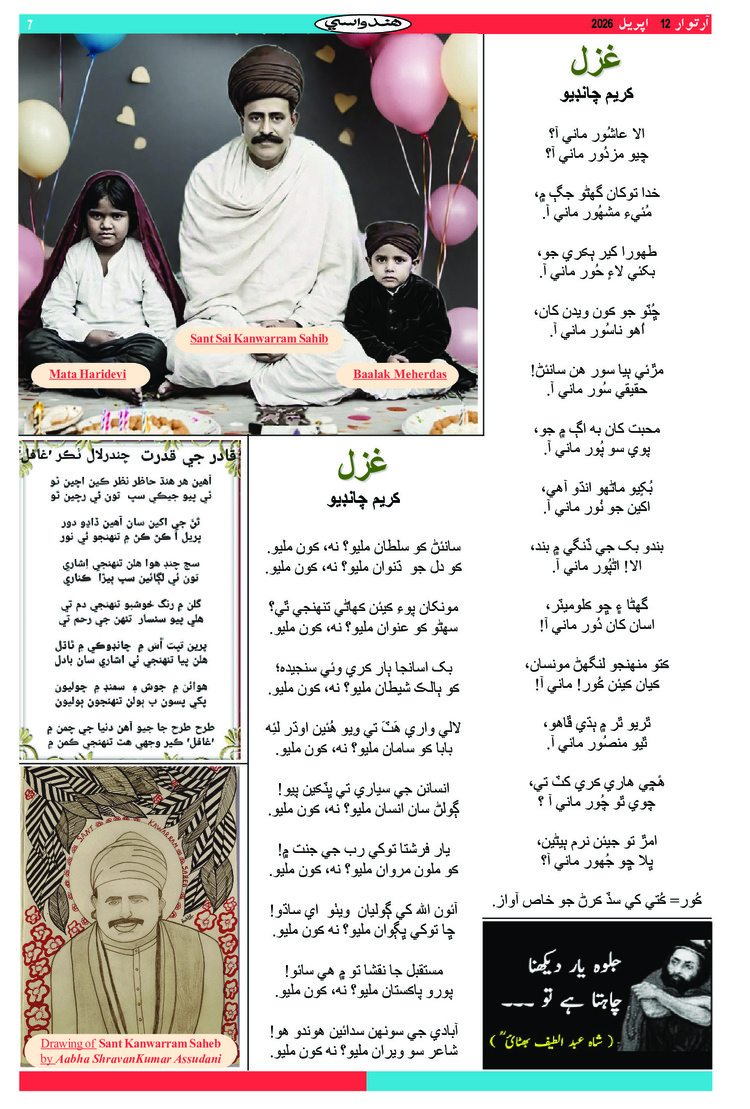 7
هندواسي
آرتوار 12 اپريل 2026
غزل
ڪريم چانڊيو
الا عاشُور ماني آ؟
چيو مزدُور ماني آ؟
خدا توکان گھڻو جڳ ۾،
مُئيءَ مشهُور ماني آ.
طهورا کير ٻڪري جو،
بکئي لاءِ حُور ماني آ.
ڇُٽو جو کون ويدن کان،
اُهو ناسُور ماني آ.
مڙئي ٻيا سور هن سانئڻ!
حقيقي سُور ماني آ.
محبت کان به اڳ ۾ جو،
پوي سو پُور ماني آ.
بُکيو ماڻهو انڌو آهي،
اکين جو نُور ماني آ.
بندو بک جي ڏنگي ۾ بند،
الا! اڻپُور ماني آ.
گھڻا ۽ ڇو ڪلوميٽر،
اسان کان دُور ماني آ!
ڪتو منهنجو لنگھڻ مونسان،
کيان ڪيئن ڪُور! ماني آ!
ٿريو ٿر ۾ ٻڌي ڦاهو،
ٿيو منصُور ماني آ.
هُڃي هاري ڪري کٽ تي،
چوي ٿو چُور ماني آ ؟
امڙ تو جيئن نرم ٻيٿين،
ڀلا ڇو جُهور ماني آ؟
ڪُور= ڪُتي کي سڏ ڪرڻ جو خاص آواز.
Sant Sai Kanwarram Sahib
Mata Haridevi
Baalak Meherdas
قادر جي قدرت چندرلال ٺڪر 'غافل
آهين هر هنڌ حاظر نظر ڪين اچين ٿو
ئي پيو جيڪي سڀ تون ئي رچين ٿو
ٿڻ جي اکين سان آهين ڏاڍو دور
پريل آ ڪڻ ڪڻ ۾ تنهنجو ئي نور
سج چنڊ هوا هلن تنهنجي اشاري
تون ئي لڳائين سڀ ٻيڙا ڪناري
گلن ۾ رنگ خوشبو تنهنجي دم تي
هلي پيو سنسار تنهن جي رحم تي
پرين تپت آس ۾ چانڊوڪي ۾ ٿاڌل
هلن پيا تنهنجي ئي اشاري سان بادل
هوائن ۾ جوش ۽ سمنڊ ۾ ڇوليون
پکي پسون ٻ ٻولن تنهنجون ٻوليون
طرح طرح جا جيو آهن دنيا جي چمن ۾
'غافل' ڪير وجهي هٿ تنهنجي ڪمن ۾
غزل
ڪريم چانڊيو
سانئڻ ڪو سلطان مليو؟ نه، ڪون مليو.
ڪو دل جو ڌنوان مليو؟ نه، ڪون مليو.
مونکان پوءِ ڪيئن ڪهاڻي تنهنجي ٿي؟
سهڻو ڪو عنوان مليو؟ نه، ڪون مليو.
بک اسانجا ٻار ڪري وئي سنجيده؛
ڪو ٻالڪ شيطان مليو؟ نه، ڪون مليو.
لالي واري هَٽَ تي ويو هُئين اوڌر لئه
بابا ڪو سامان مليو؟ نه، ڪون مليو.
انسانن جي سياري تي ڀٽڪين پيو!
ڳولڻ سان انسان مليو؟ نه، ڪون مليو.
يار فرشتا توکي رب جي جنت ۾!
ڪو ملون مروان مليو؟ نه، ڪون مليو.
آئون الله کي ڳوليان ويٺو اي ساڌو!
ڇا توکي ڀڳوان مليو؟ نه ڪون مليو.
مستقبل جا نقشا تو ۾ هي سائو!
پورو پاڪستان مليو؟ نه، ڪون مليو.
آبادي جي سونهن سدائين هوندو هو!
شاعر سو ويران مليو؟ نه، ڪون مليو.
Drawing of Sant Kanwarram Saheb
by Aabha ShravanKumar Assudani
SANT KAWARRAM SAHEB
جلوہ یار دیکھنا
چاہتا ہے تو ...
( شاہ عبد الطیف بھٹائیؒ )